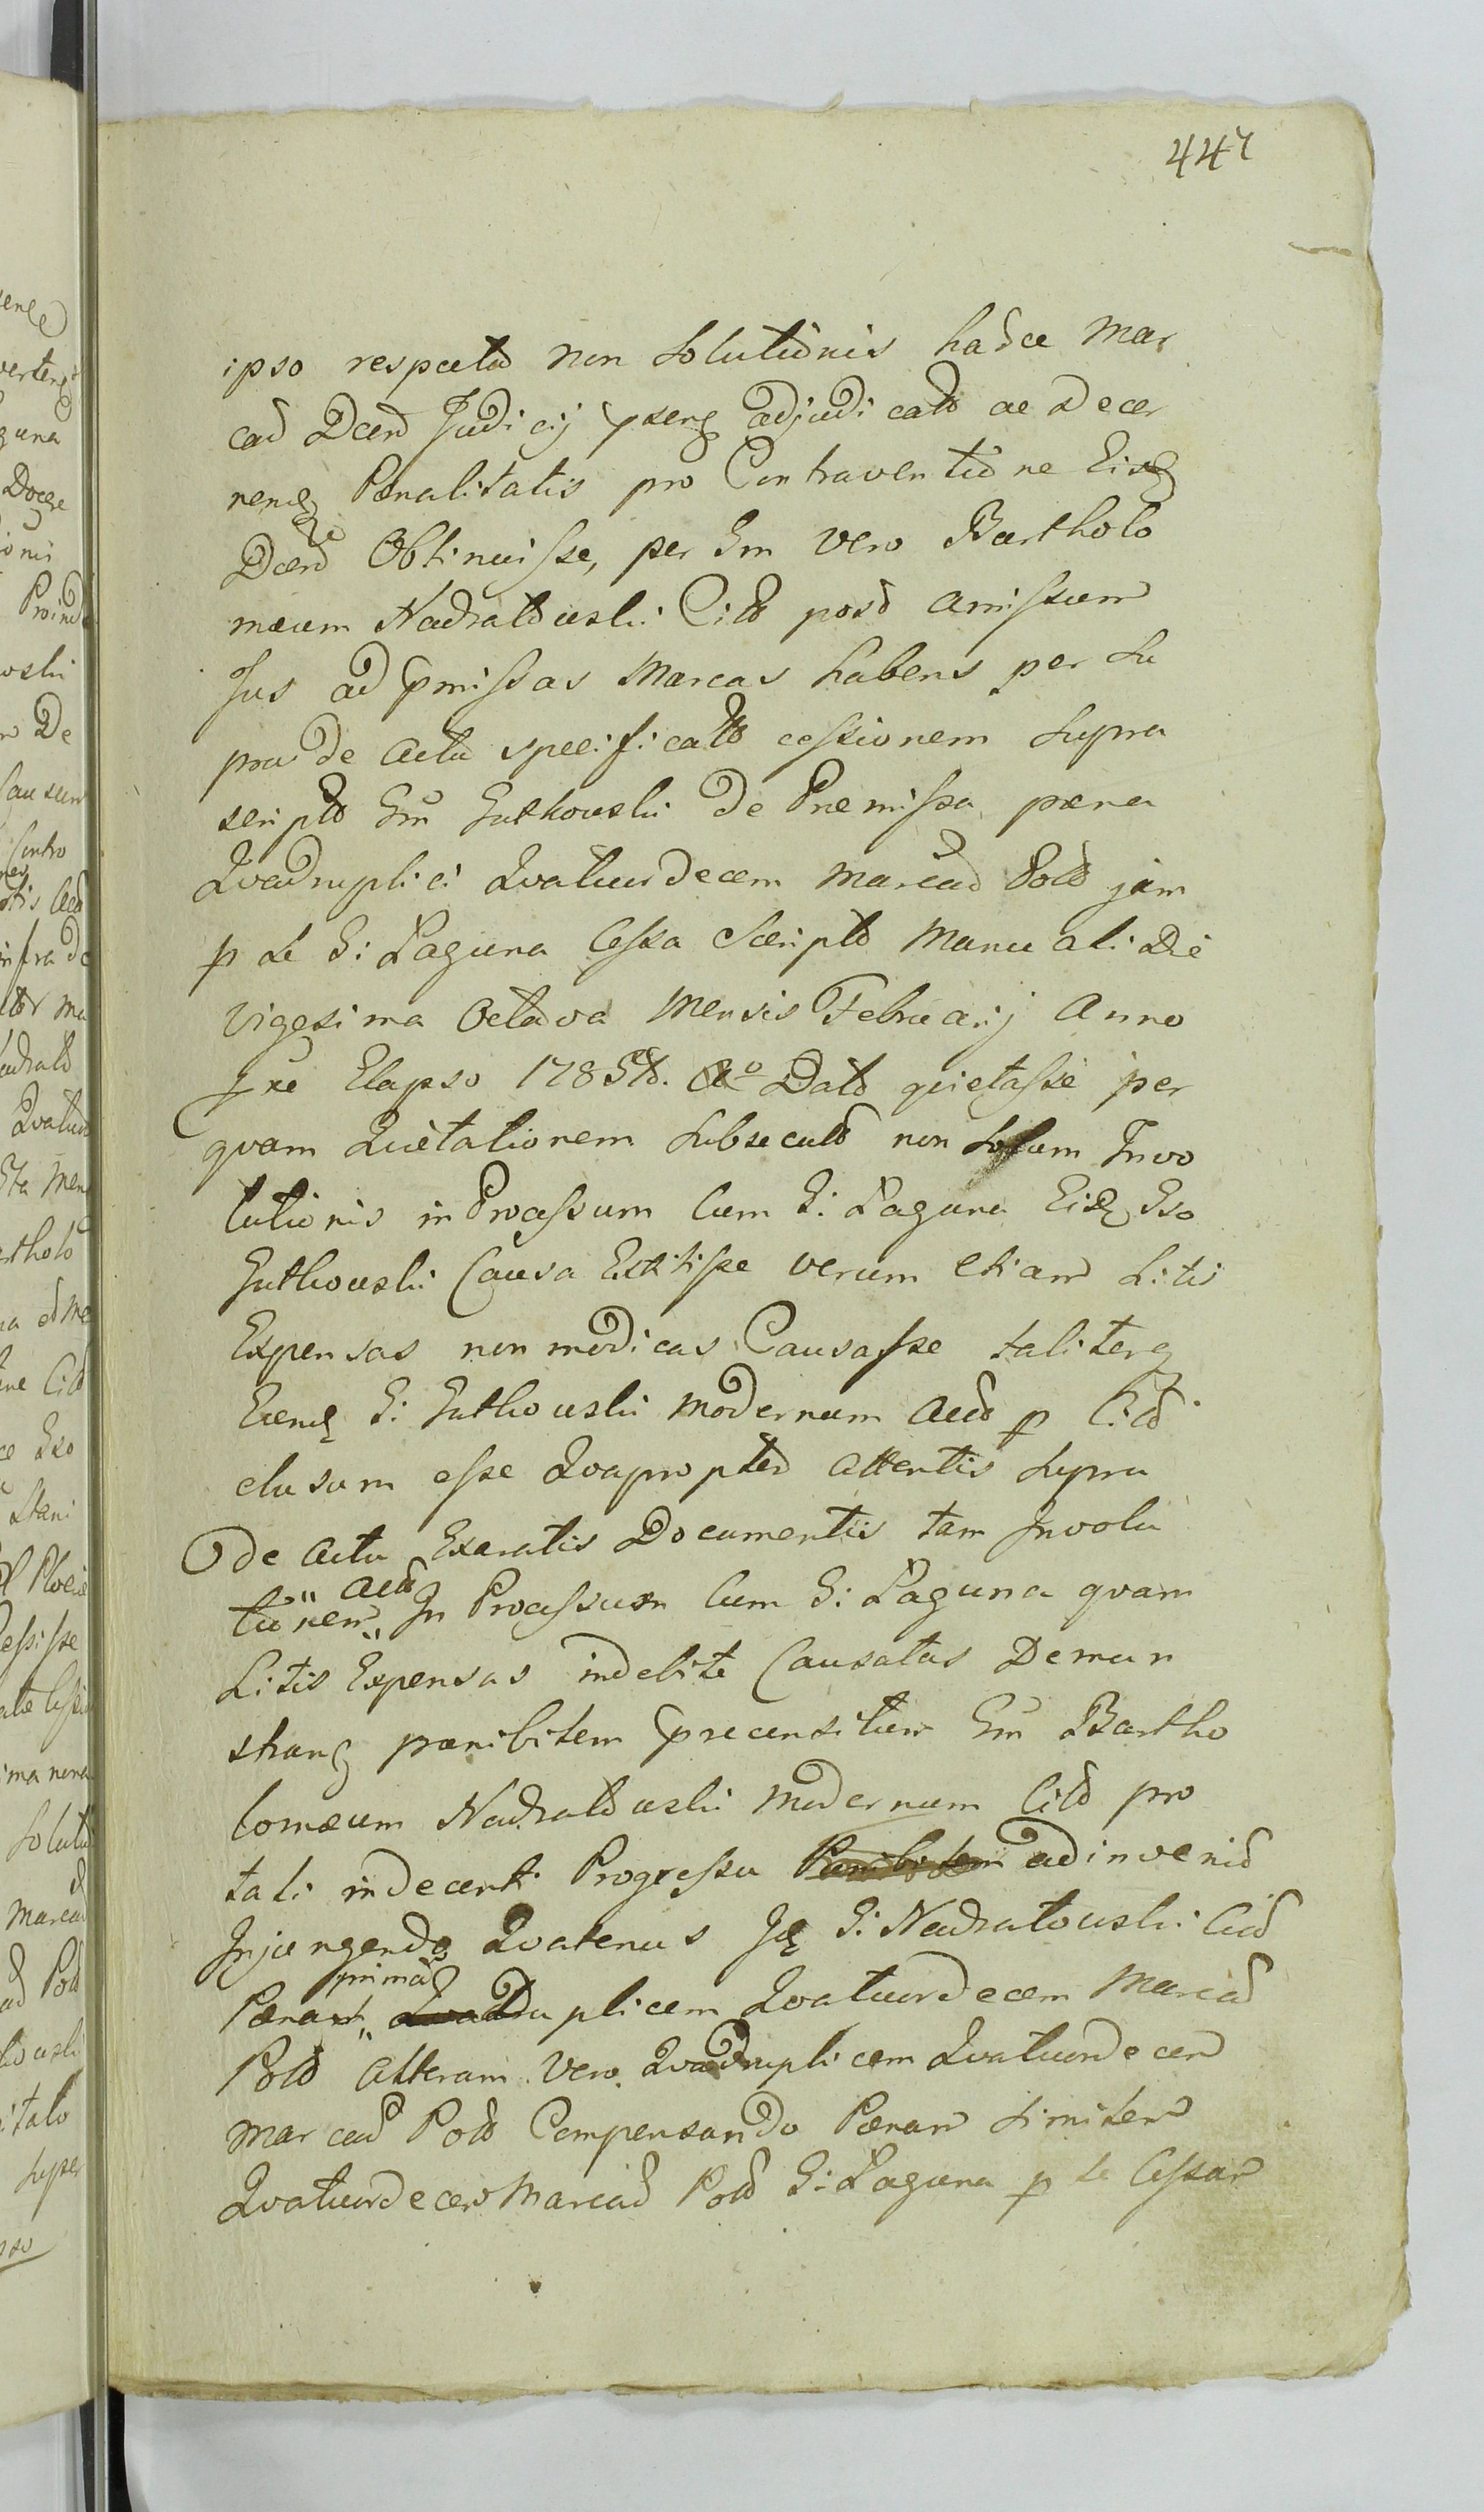 447
ipso respectu non Solutionis hasce Mar
cas Dcen Judicij pseng adjudicato ac decer
neng Pœnalitatis pro Contraventione Eisq
Dcen Obtinuisse, per Gm vero Bartholo
mæum Nadratowski Citto post amissum
Jus ad pmissas Marcas habens per Su
pra de Actu specificato cessionem Supra
scripto Gm Gutkowski de Præmissa pæna
Qvadruplici Qvatuordecem Marcas Pol jam
p Se G: Łaguna Cessa Scripto Manuali Die
Vigesima Octava Mensis Februarij Anno
pxe Elapso 1785to. Dato quietasse per
qvam Quietationem Subsecuto non Solum Invo
lutionis in Processum Cum G: Łaguna Eidq Gso
Gutkowski Causa Extitisse verum etiam Litis
Expensas non modicas Causasse taliterq
Eundq G: Gutkowski modernum Acto p Citto
elusum esse Qvapropter attentis Supra
de Actu Exaratis Documentis tam Involu
tionem Acto In Processum Cum G: Łaguna qvam
Litis Expensas indebite Causatas Demon
strang pænibitem precensitum Gm Bartho
lomæum Nadratowski modernum Citto pro
tali indecenti Progressu adinvenid
Injungendo Qvatenus Idq G: Nadratowski Citto
Pænam primam Duplicem Qvatuordecem Marcas
Pol Alteram Vero Qvadruplicem Qvatuordecem
Marcas Pol Compensando Pænam Similem
Qvatuordecem Marcas Pol G: Łaguna p Se Cessam